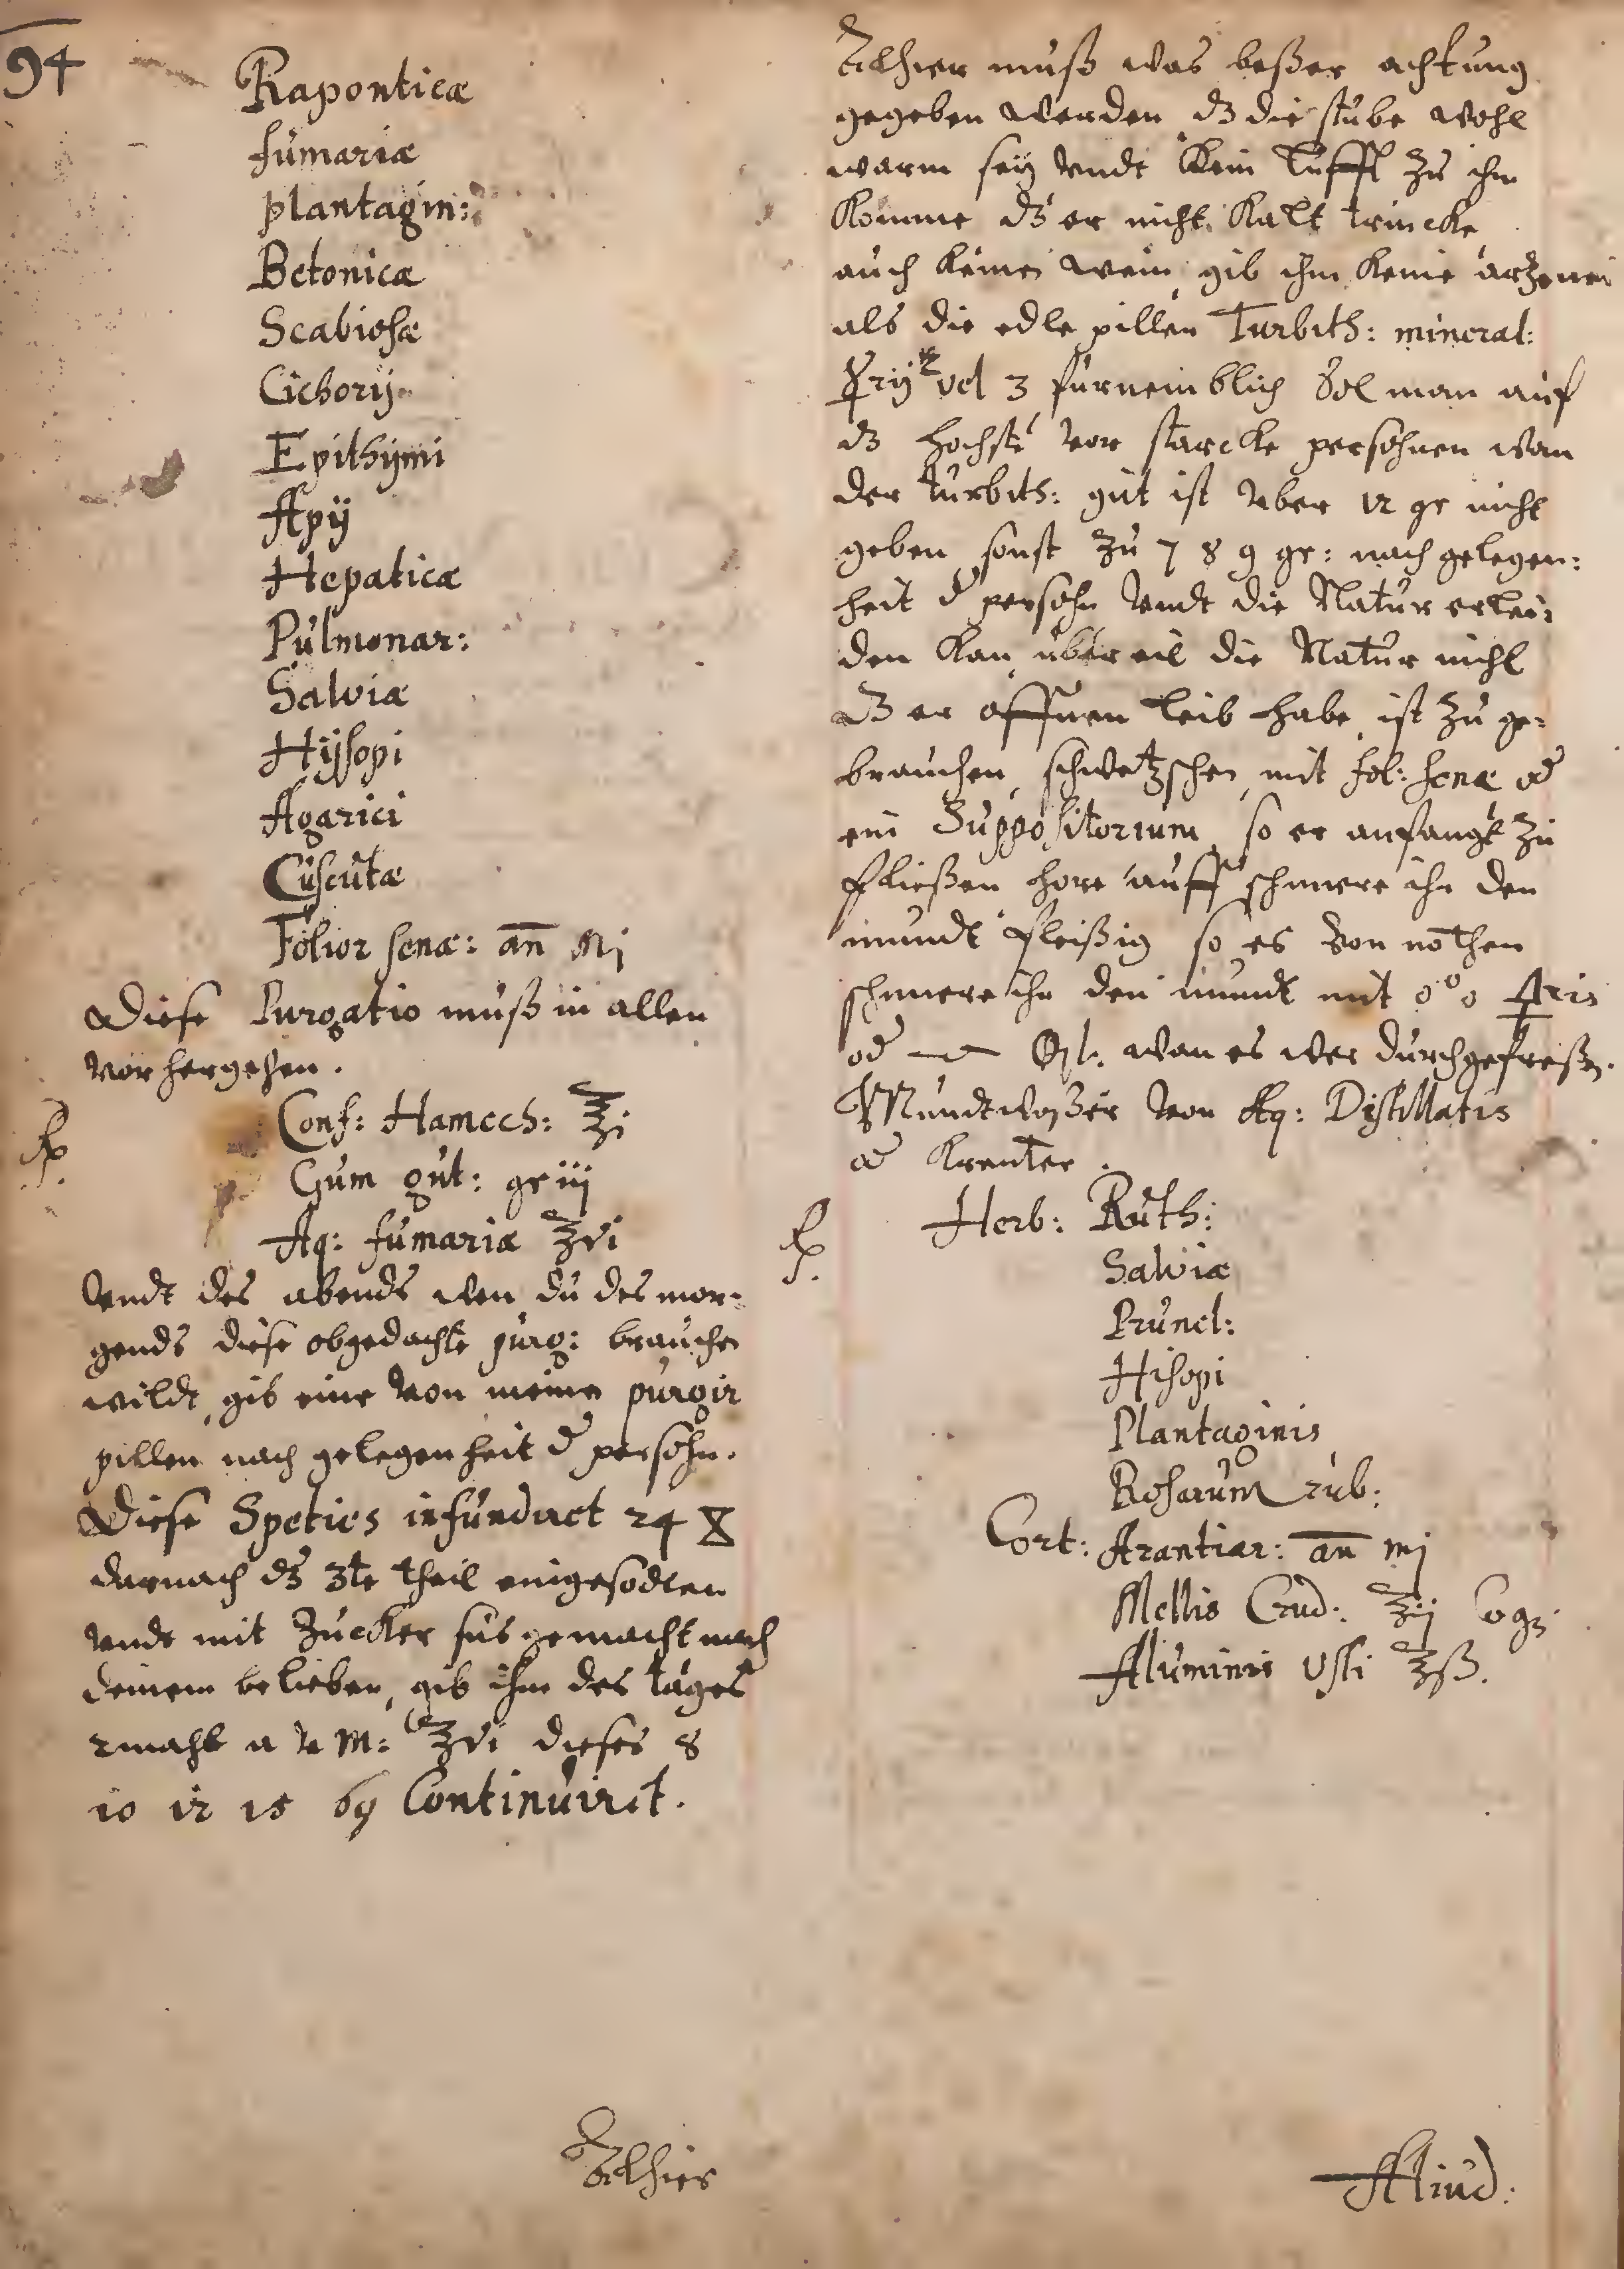 94
Raponticæ
fumariæ
plantagin:
Betonicæ
Scabiosæ
Cichorij
Epithijmi
Apij
Hepaticæ
Pulmonar:
Salviæ
Hijsopi
Agarici
Cuscutæ
Folior senæ: an Mj
Diese Purgatio muß in allen
vorhergehen.
℞
Conf: Hamech: ʒi
Gum gut: gr iij
Aq: fumariæ ℥vi
vndt des abends wen du des mor-
gends diese obgedachte purg: brauchen
wildt, gib eine von meine purgir
pillen nach gelegenheit d persohn.
Diese Speties infundirt 24
darnach dz 3te theil eingesodten
vndt mit Zucker süs gemacht nach
deinem belieben, gib ihm des tages
2mahl a v M: ℥vi dieses 8
10 12 15 Continuiret.
Alhier
Alhier muß was beßer achtung
gegeben werden dz die stube wohl
warm seÿ vndt kein lufft zu ihm
komme dz er nicht kalt trincke
auch keinen wein, gib ihm keine arzenei
als die edle pillen Turbith: mineral:
vel 3 furnemblich sol man auf
dz hochste vor starcke persohnen wan
der turbith: gut ist vber 12 gr nicht
geben, sonst zu 7 8 9 gr: nach gelegen:
heit d persohn vndt die Natur erlei:
den kan, ubereil die Natur nicht
dz er offnen leib habe, ist zu ge:
brauchen, schwetzschen mit fol: senæ od
ein Suppositorium, so er anfangt zu
fließen hore auff schmere ihn den
mundt fleißig so es von nothen
schmere ihn den mundt mit
od wan es wer durchgefreßen.
Mundtwaßer von Aq: Distillatis
od Kreuter.
℞
Herb: Ruth:
Salviæ
Prunel:
Hisopi
Plantaginis
Rosarum rub:
Cort: Arantiar: an mj
Mellis Crud: ℥ij
Aluminis Vsti ℥ß.
Aliud: